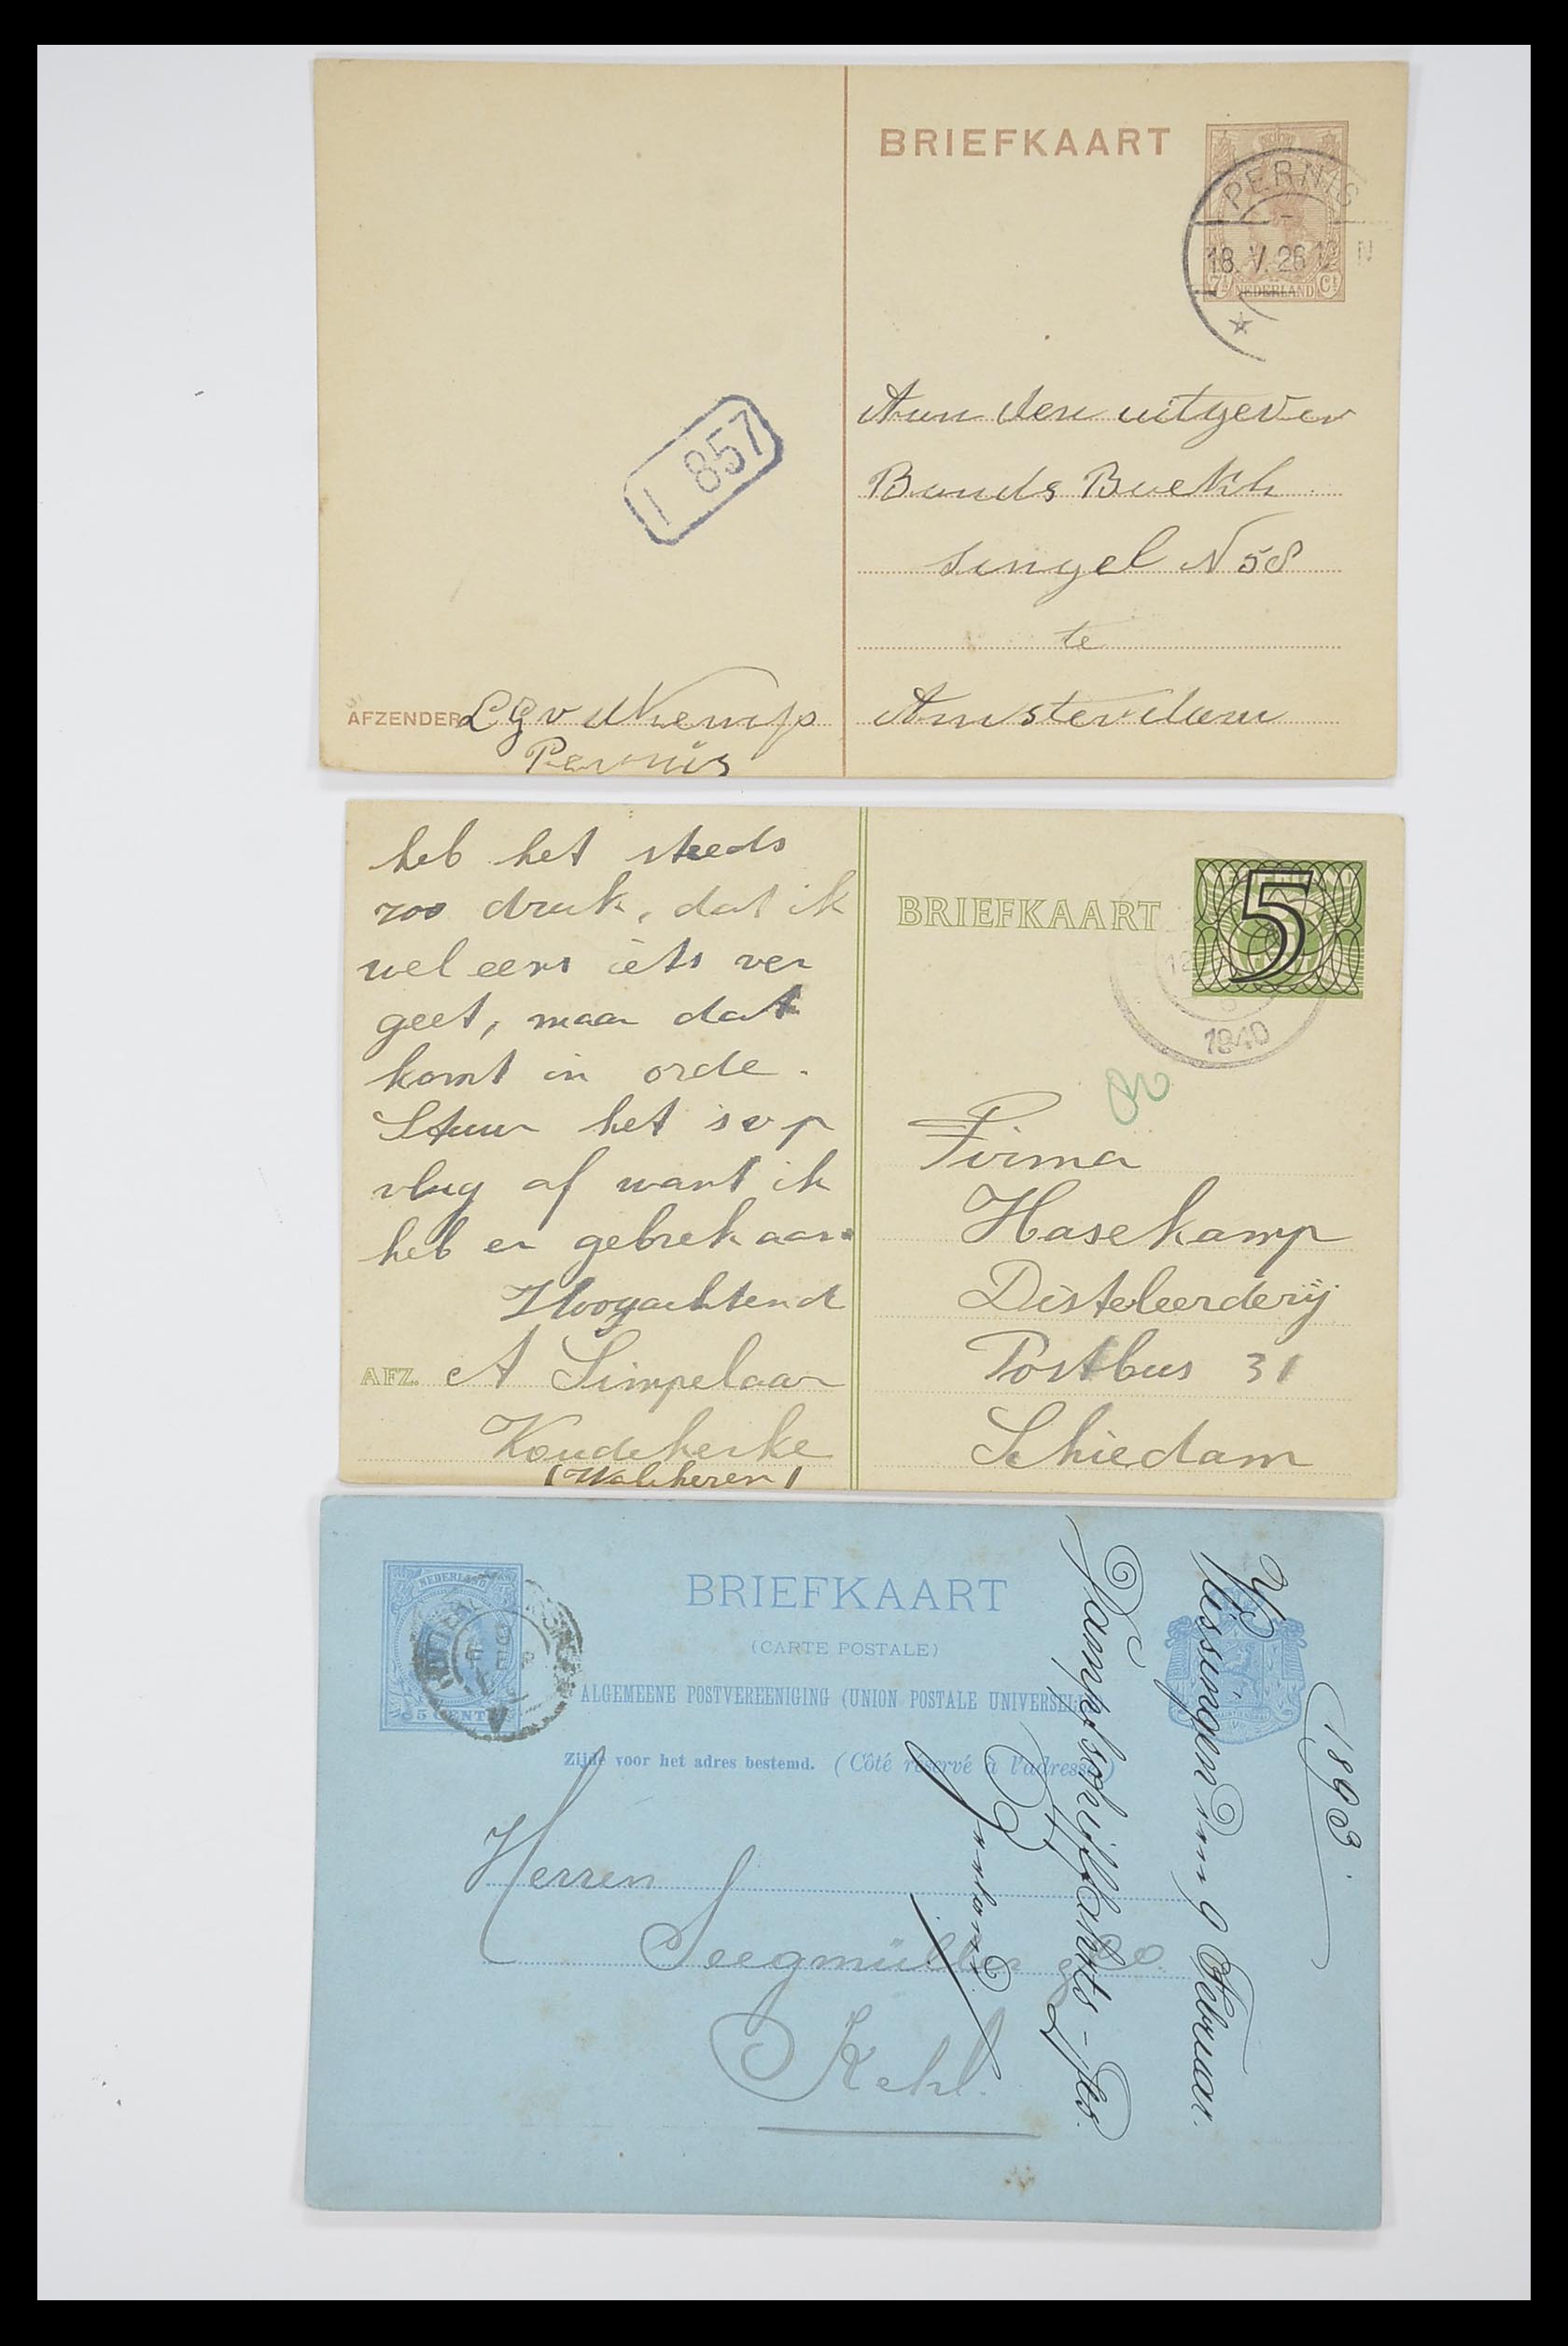 BRIEFKAART
PERNIS
18. V. 26
7½ NEDERLAND Ct
Aan den uitgever
Bands Buekh
Singel N 58
te
Amsterdam
I 857
AFZENDER
Pernis
heb het steeds
zoo druk, dat ik
wel eens iets ver
geet, maar dat
komt in orde.
Stuur het s v p
vlug af want ik
heb er gebrek aan.
Hoogachtend
AFZ. A Simpelaar
Koudekerke
(Walcheren)
BRIEFKAART
5
1940
Firma
Hasekamp
Disteleerderij
Postbus 31
Schiedam
NEDERLAND
5 CENT
BRIEFKAART
(CARTE POSTALE)
ALGEMEENE POSTVEREENIGING (UNION POSTALE UNIVERSELLE)
Zijde voor het adres bestemd. (Côté réservé à l'adresse)
Herren
Seegmüller & Co.
Kehl.
Vlissingen den 9 Februar.
1893.
Dampfschifffahrts-Ges.
Zeeland